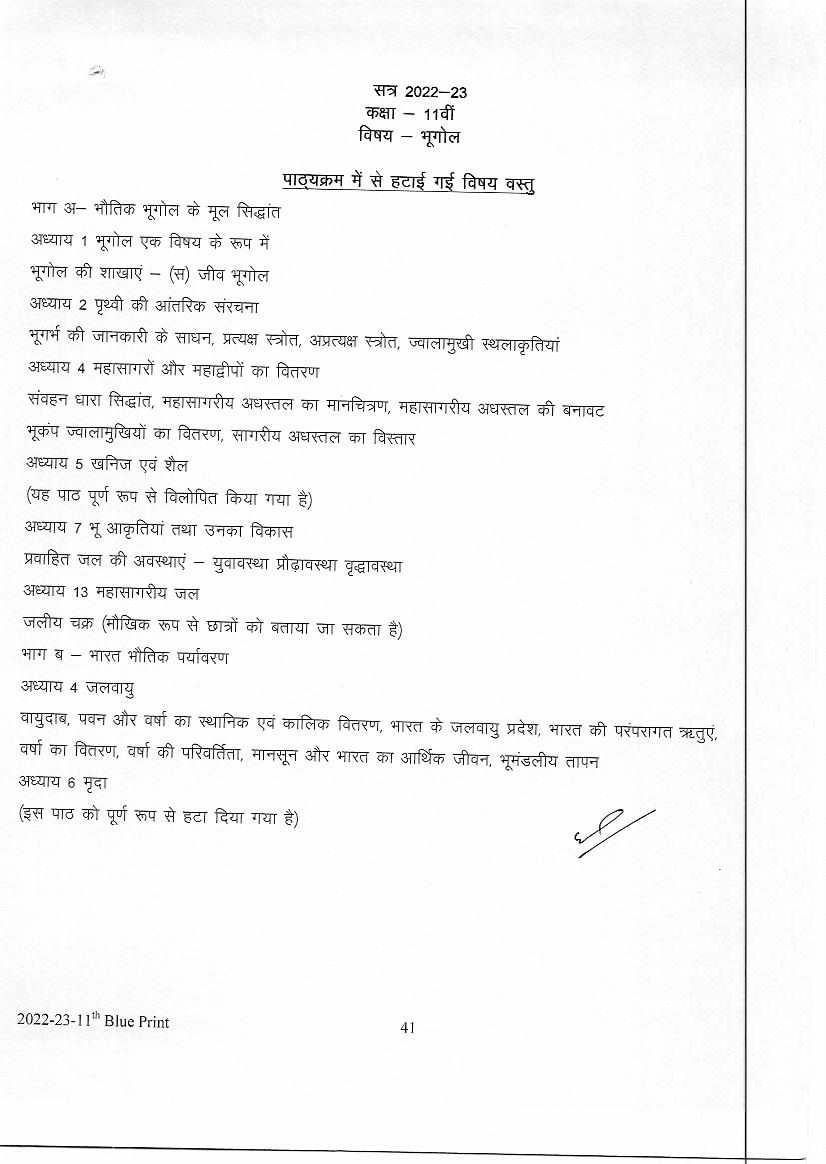 सत्र 2022–23
कक्षा – 11वीं
विषय – भूगोल
पाठ्यक्रम में से हटाई गई विषय वस्तु
भाग अ– भौतिक भूगोल के मूल सिद्धांत
अध्याय 1 भूगोल एक विषय के रूप में
भूगोल की शाखाएं – (स) जीव भूगोल
अध्याय 2 पृथ्वी की आंतरिक संरचना
भूगर्भ की जानकारी के साधन, प्रत्यक्ष स्त्रोत, अप्रत्यक्ष स्त्रोत, ज्वालामुखी स्थलाकृतियां
अध्याय 4 महासागरों और महाद्वीपों का वितरण
संवहन धारा सिद्धांत, महासागरीय अधस्तल का मानचित्रण, महासागरीय अधस्तल की बनावट
भूकंप ज्वालामुखियों का वितरण, सागरीय अधस्तल का विस्तार
अध्याय 5 खनिज एवं शैल
(यह पाठ पूर्ण रूप से विलोपित किया गया है)
अध्याय 7 भू आकृतियां तथा उनका विकास
प्रवाहित जल की अवस्थाएं – युवावस्था प्रौढ़ावस्था वृद्धावस्था
अध्याय 13 महासागरीय जल
जलीय चक्र (मौखिक रूप से छात्रों को बताया जा सकता है)
भाग ब – भारत भौतिक पर्यावरण
अध्याय 4 जलवायु
वायुदाब, पवन और वर्षा का स्थानिक एवं कालिक वितरण, भारत के जलवायु प्रदेश, भारत की परंपरागत ऋतुएं,
वर्षा का वितरण, वर्षा की परिवर्तिता, मानसून और भारत का आर्थिक जीवन, भूमंडलीय तापन
अध्याय 6 मृदा
(इस पाठ को पूर्ण रूप से हटा दिया गया है)
2022-23-11th Blue Print
41